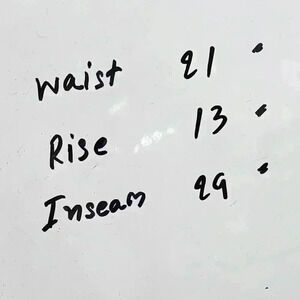 Waist 21 "
Rise 13 "
Inseam 29 "